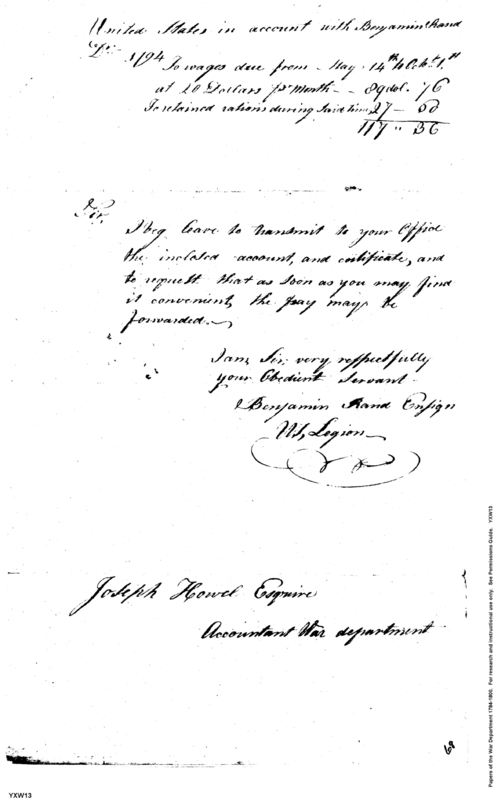 United States in account with Benjamin Rand
Dr. 1794
To wages due from May 14th to Octr. 1st
at 20 Dollars pr Month -- 89 dol. 76
To retained rations during said time 27 - 60
117 " 36
Sir,
I beg leave to transmit to your Office
the inclosed account, and certificate, and
to request that as soon as you may find
it convenient, the pay may be
forwarded.
I am, Sir, very respectfully
your Obedient Servant
Benjamin Rand Ensign
US, Legion
Joseph Howel Esquire
Accountant War department
69
YXW13
Papers of the War Department 1784-1800. For research and instructional use only. See Permissions Guide. YXW13